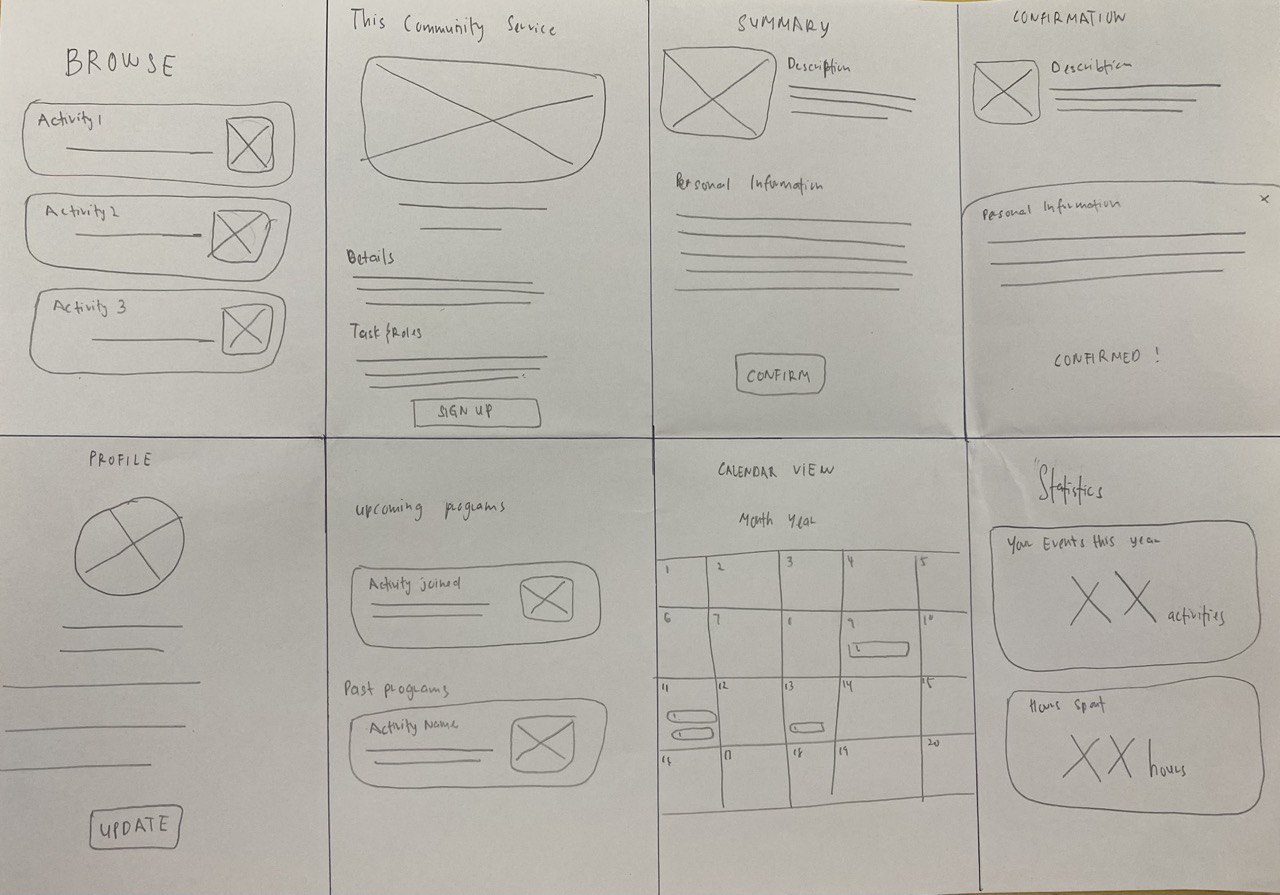 BROWSE
Activity 1
Activity 2
Activity 3
This Community Service
Details
Task & Roles
SIGN UP
SUMMARY
Description
Personal Information
CONFIRM
CONFIRMATION
Description
Personal Information
X
CONFIRMED !
PROFILE
UPDATE
Upcoming programs
Activity joined
Past programs
Activity Name
CALENDAR VIEW
Month Year
1 2 3 4 5
6 7 8 9 10
11 12 13 14 15
17 18 19 20
"Statistics
Your Events this year
XX activities
Hours Spent
XX hours